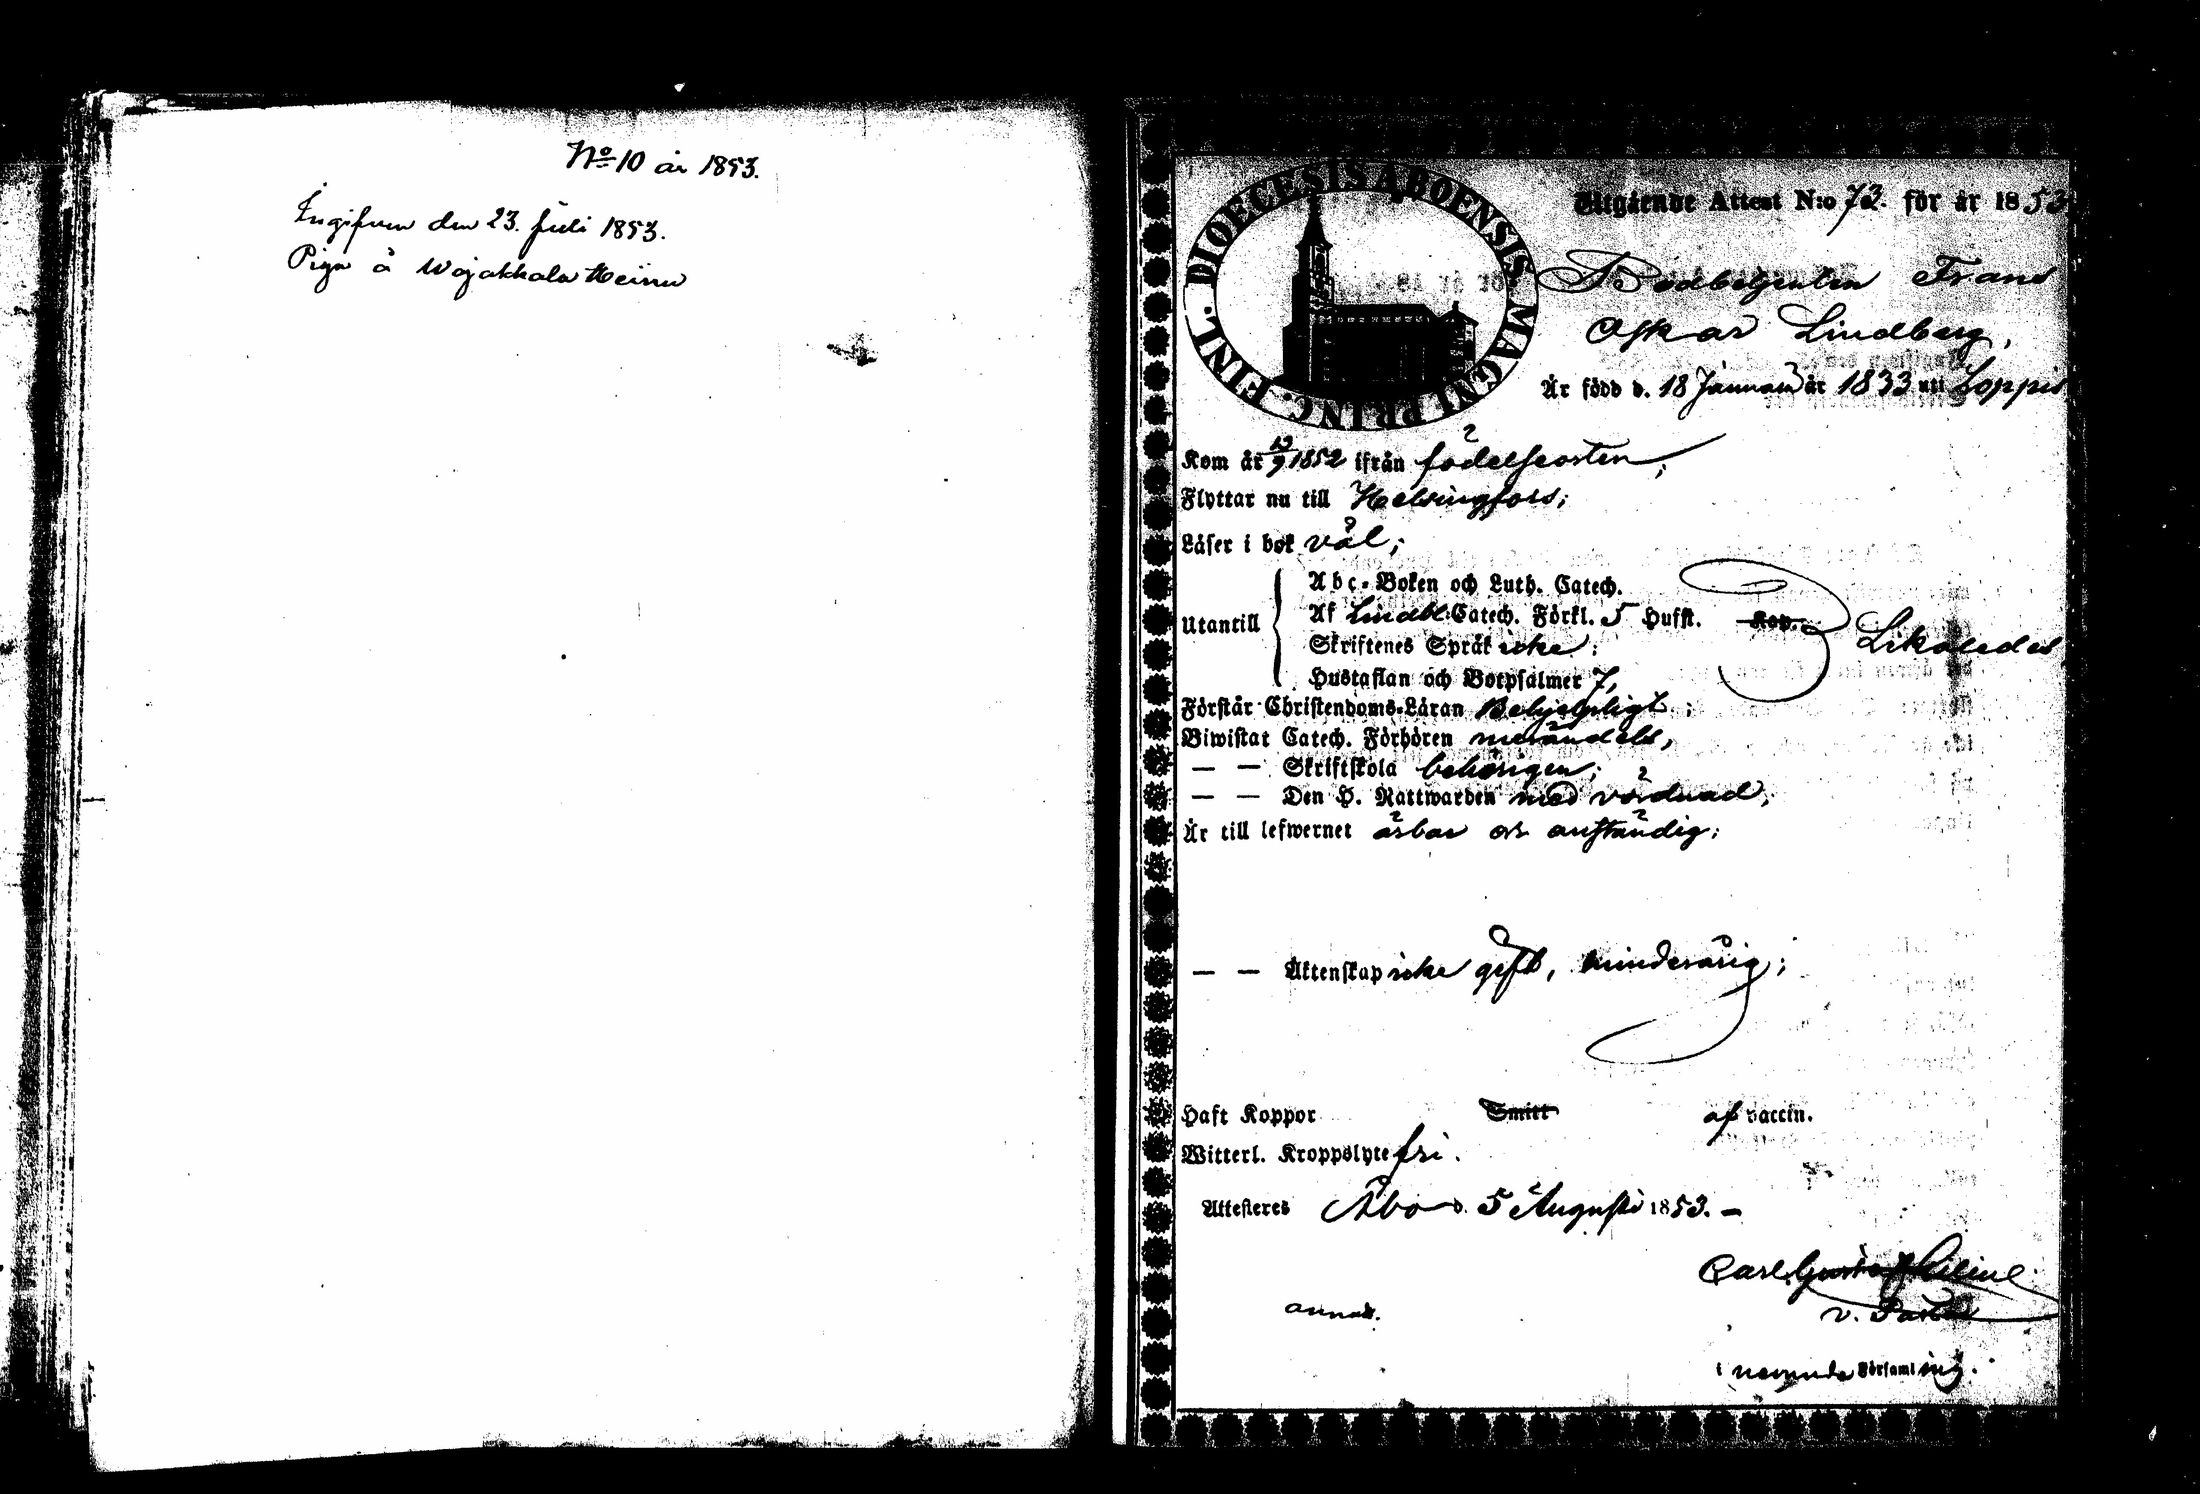 No 10 år 1853.
Ingifven den 23. Juli 1853.
Piga å Wojakkala Heinu
DIOECESIS ABOENSIS MAGNI PRINC. FINL.
Utgående Attest N:o 72. för år 1853
Bodbetjenten Frans
Oskar Lindberg,
Är född d. 18 Januari år 1833 uti Loppis
Kom år 12/9 1852 ifrån födelseorten;
Flyttar nu till Helsingfors;
Läser i bok väl;
Utantill
Abc-Boken och Luth. Catech.
Af Lindbl. Catech. Förkl. 5 Hufst. Kap.
Skriftenes Språk icke; Likaledes
Hustaflan och Botpsalmer 7,
Förstår Christendoms-Läran Behjelpligt;
Biwistat Catech. Förhören
— — Skriftskola behörigen;
— — Den H. Nattwarden med vördnad;
Är till lefwernet ärbar och anständig;
— — Äktenskap icke gift, minderårig;
Haft Koppor Smitt af vaccin.
Witterl. Kroppslyte fri.
Attesteres Åbo d. 5 Augusti 1853. —
Carl Gustaf
v. Pastor
annot.
i nemnde Församling.